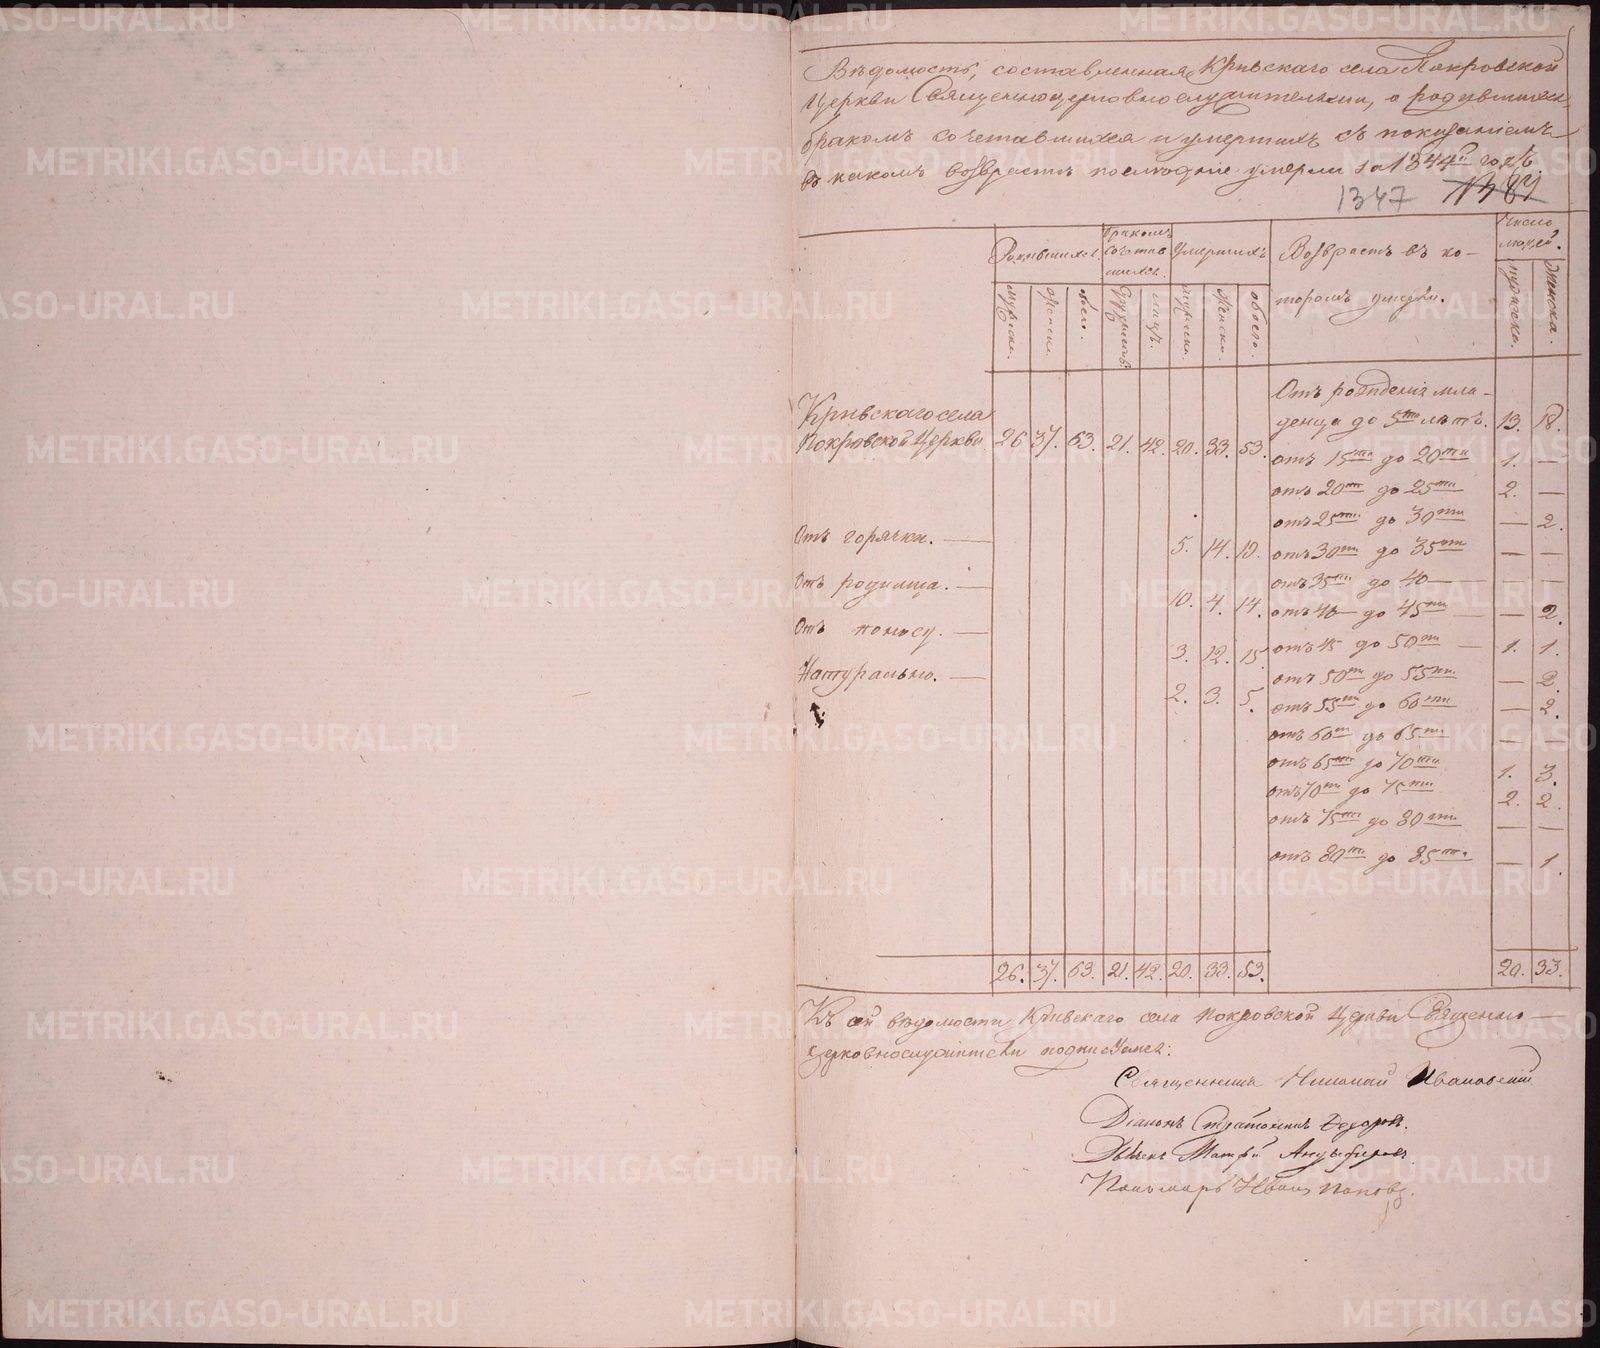 Вѣдомость, составленная Кривскаго села Покровской
Церкви Священноцерковнослужительми, о родившихся,
бракомъ сочетавшихся и умершихъ съ показаніемъ
въ какомъ возврастѣ послѣдніе умерли за 1844й годъ.
1347
Родившихся.
бракомъ сочетавшихся.
Умершихъ
Возврастъ въ ко-
торомъ умерли.
Число людей.
мужеска.
Женска.
обоего.
лицъ.
мужеска.
Женска.
обоего.
мужеска.
Женска.
Кривскаго села
Покровской Церкви 26 37. 63. 21. 42. 20. 33. 53.
Отъ рожденія мла-
денца до 5ти лѣтъ. 13. 18.
отъ 15ти до 20ти 1. —
отъ 20ти до 25ти 2. —
отъ 25ти до 30ти — 2.
Отъ горячки. — 5. 14. 19.
отъ 30ти до 35ти — —
отъ 35ти до 40 — — —
Отъ родимца. — 10. 4. 14.
отъ 40 до 45ти — 2.
Отъ поносу. — 3. 12. 15.
отъ 45 до 50ти — 1. 1.
отъ 50ти до 55ти — 2.
Натурально. — 2. 3. 5.
отъ 55ти до 60ти — 2.
отъ 60ти до 65ти — —
отъ 65ти до 70ти 1. 3.
отъ 70ти до 75ти 2. 2.
отъ 75ти до 80ти — —
отъ 80ти до 85ти — 1.
26. 37. 63. 21. 42. 20. 33. 53. 20. 33.
Къ сей вѣдомости Кривскаго села Покровской Церкви Священно-
церковнослужители подписуемся:
Священникъ Николай Ивановскій
Діаконъ Стратоникъ
Дьячекъ Матфій
Пономарь Иванъ Поповъ.
METRIKI.GASO-URAL.RU